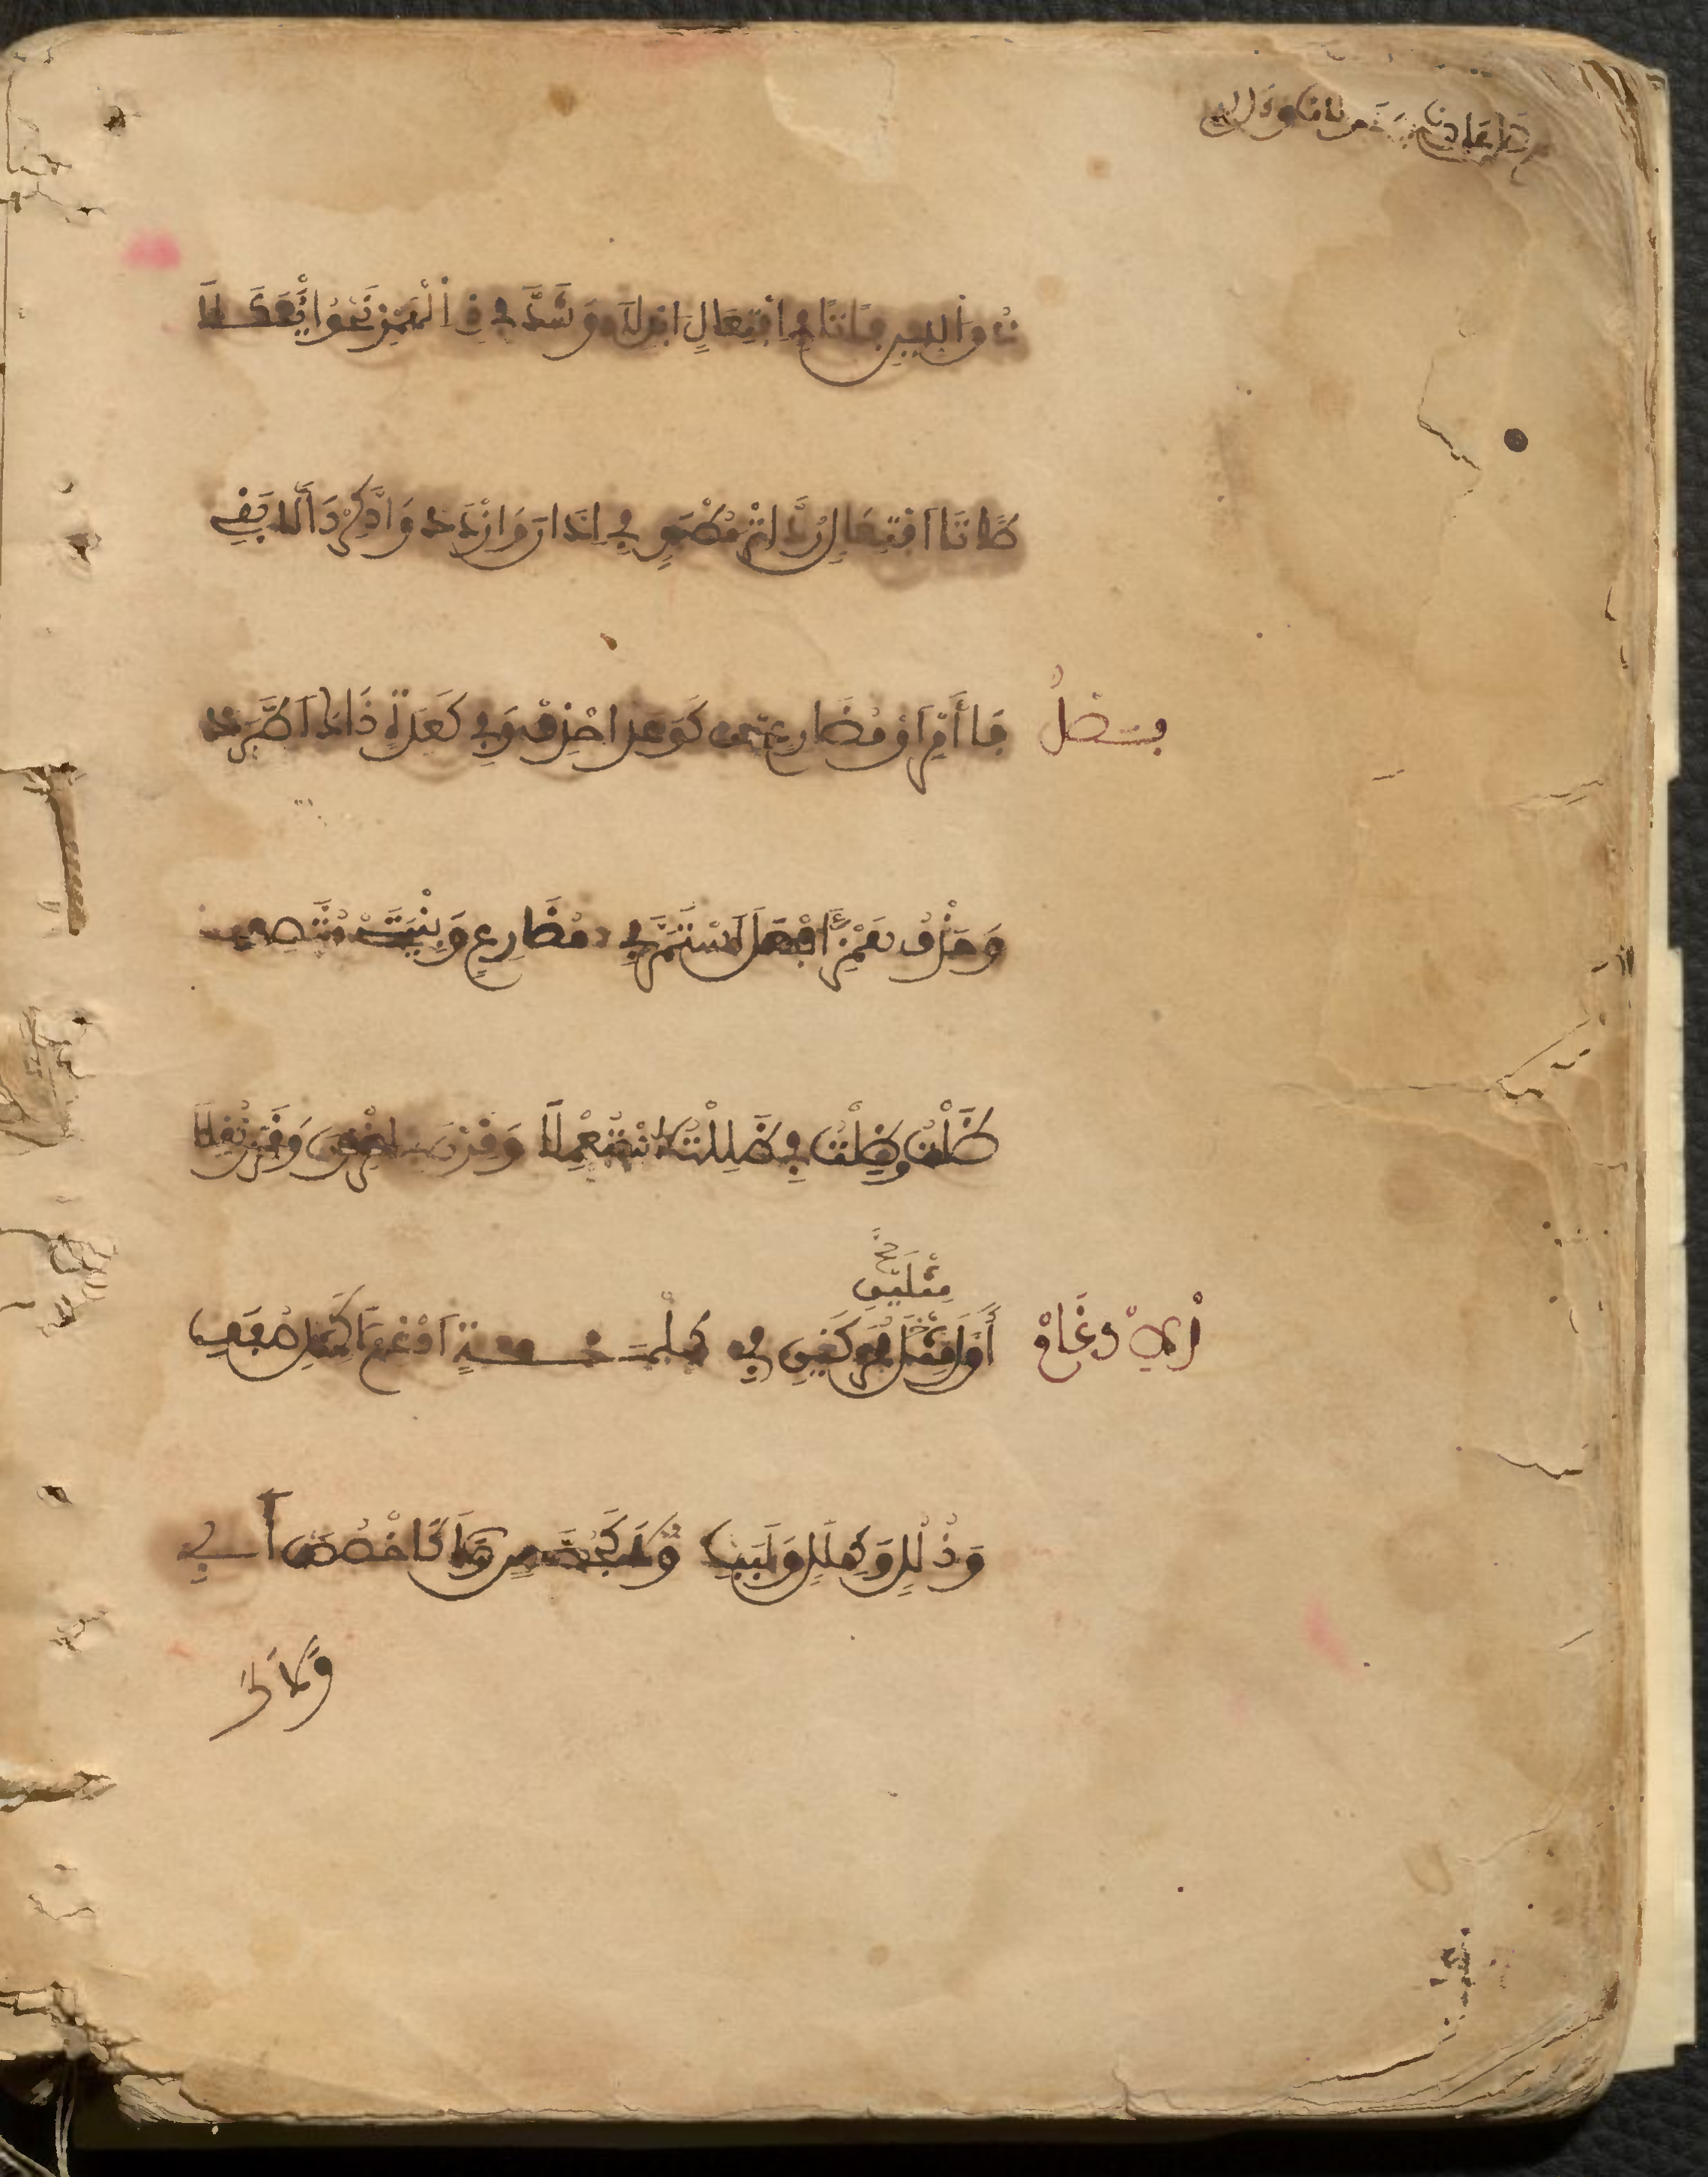 ذو اللين فا تا في افتعال ابدلا وشذ في ذي الهمز نحو ائتكلا
طا تا افتعال رد اثر مطبق في ادان وازدد وادكر دالا بقي
فصل فا أمر او مضارع من كوعد احذف وفي كعدة ذاك اطرد
وحذف همز أفعل استمر في مضارع وبنيتي متصف
ظلت وظلت في ظللت استعملا وقرن في اقررن وقرن نقلا
الإدغام أول مثلين محركين في كلمة ادغم لا كمثل صفف
مثلين
وذلل وكلل ولبب ولا كجسس ولا كاخصص أبي
ولا كـ